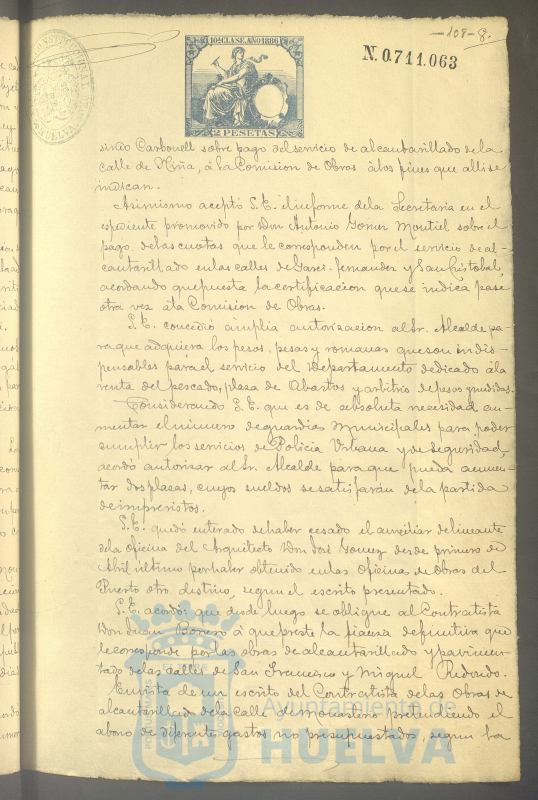 108-8.
10ª CLASE. AÑO 1886
N.0.711.063
2 PESETAS
HUELVA
sindo Carbonell sobre pago del servicio de alcantarillado de la
calle de Niña, á la Comision de Obras á los fines que alli se
indican.
Asimismo aceptó S.E. el informe de la Secretaria en el
espediente promovido por Don Antonio Gomez Montiel sobre el
pago de las cuotas que le corresponden por el servicio de al-
cantarillado en las calles de Garci-fernandez y San Cristobal,
acordando que puesta la certificacion que se indica pase
otra vez á la Comision de Obras.
S.E. concedió amplia autorizacion al Sr. Alcalde pa-
ra que adquiera los pesos, pesas y romanas que son indis-
pensables para el servicio del Departamento dedicado á la
venta del pescado, plaza de Abastos y arbitrio de pesos y medidas.
Considerando S.E. que es de absoluta necesidad au-
mentar el número de guardias Municipales para poder
cumplir los servicios de Policia Urbana y de seguridad,
acordó autorizar al Sr. Alcalde para que pueda aumen-
tar dos plazas, cuyos sueldos se satisfarán de la partida
de imprevistos.
S.E. quedó enterado de haber cesado el auxiliar delineante
de la oficina del Arquitecto Don José Gomez desde primero de
Abril último por haber obtenido en las Oficinas de Obras del
Puerto otro destino, segun el escrito presentado.
S.E. acordó: que desde luego se obligue al Contratista
Don Juan á que preste la fianza definitiva que
le corresponde por las obras de alcantarillado y pavimen-
tado de las calles de San Francisco y Miguel Redondo.
En vista de un escrito del Contratista de las Obras de
alcantarillado de la calle de Monasterio pretendiendo el
abono de diferentes gastos no presupuestados, segun ha
Ayuntamiento de
HUELVA